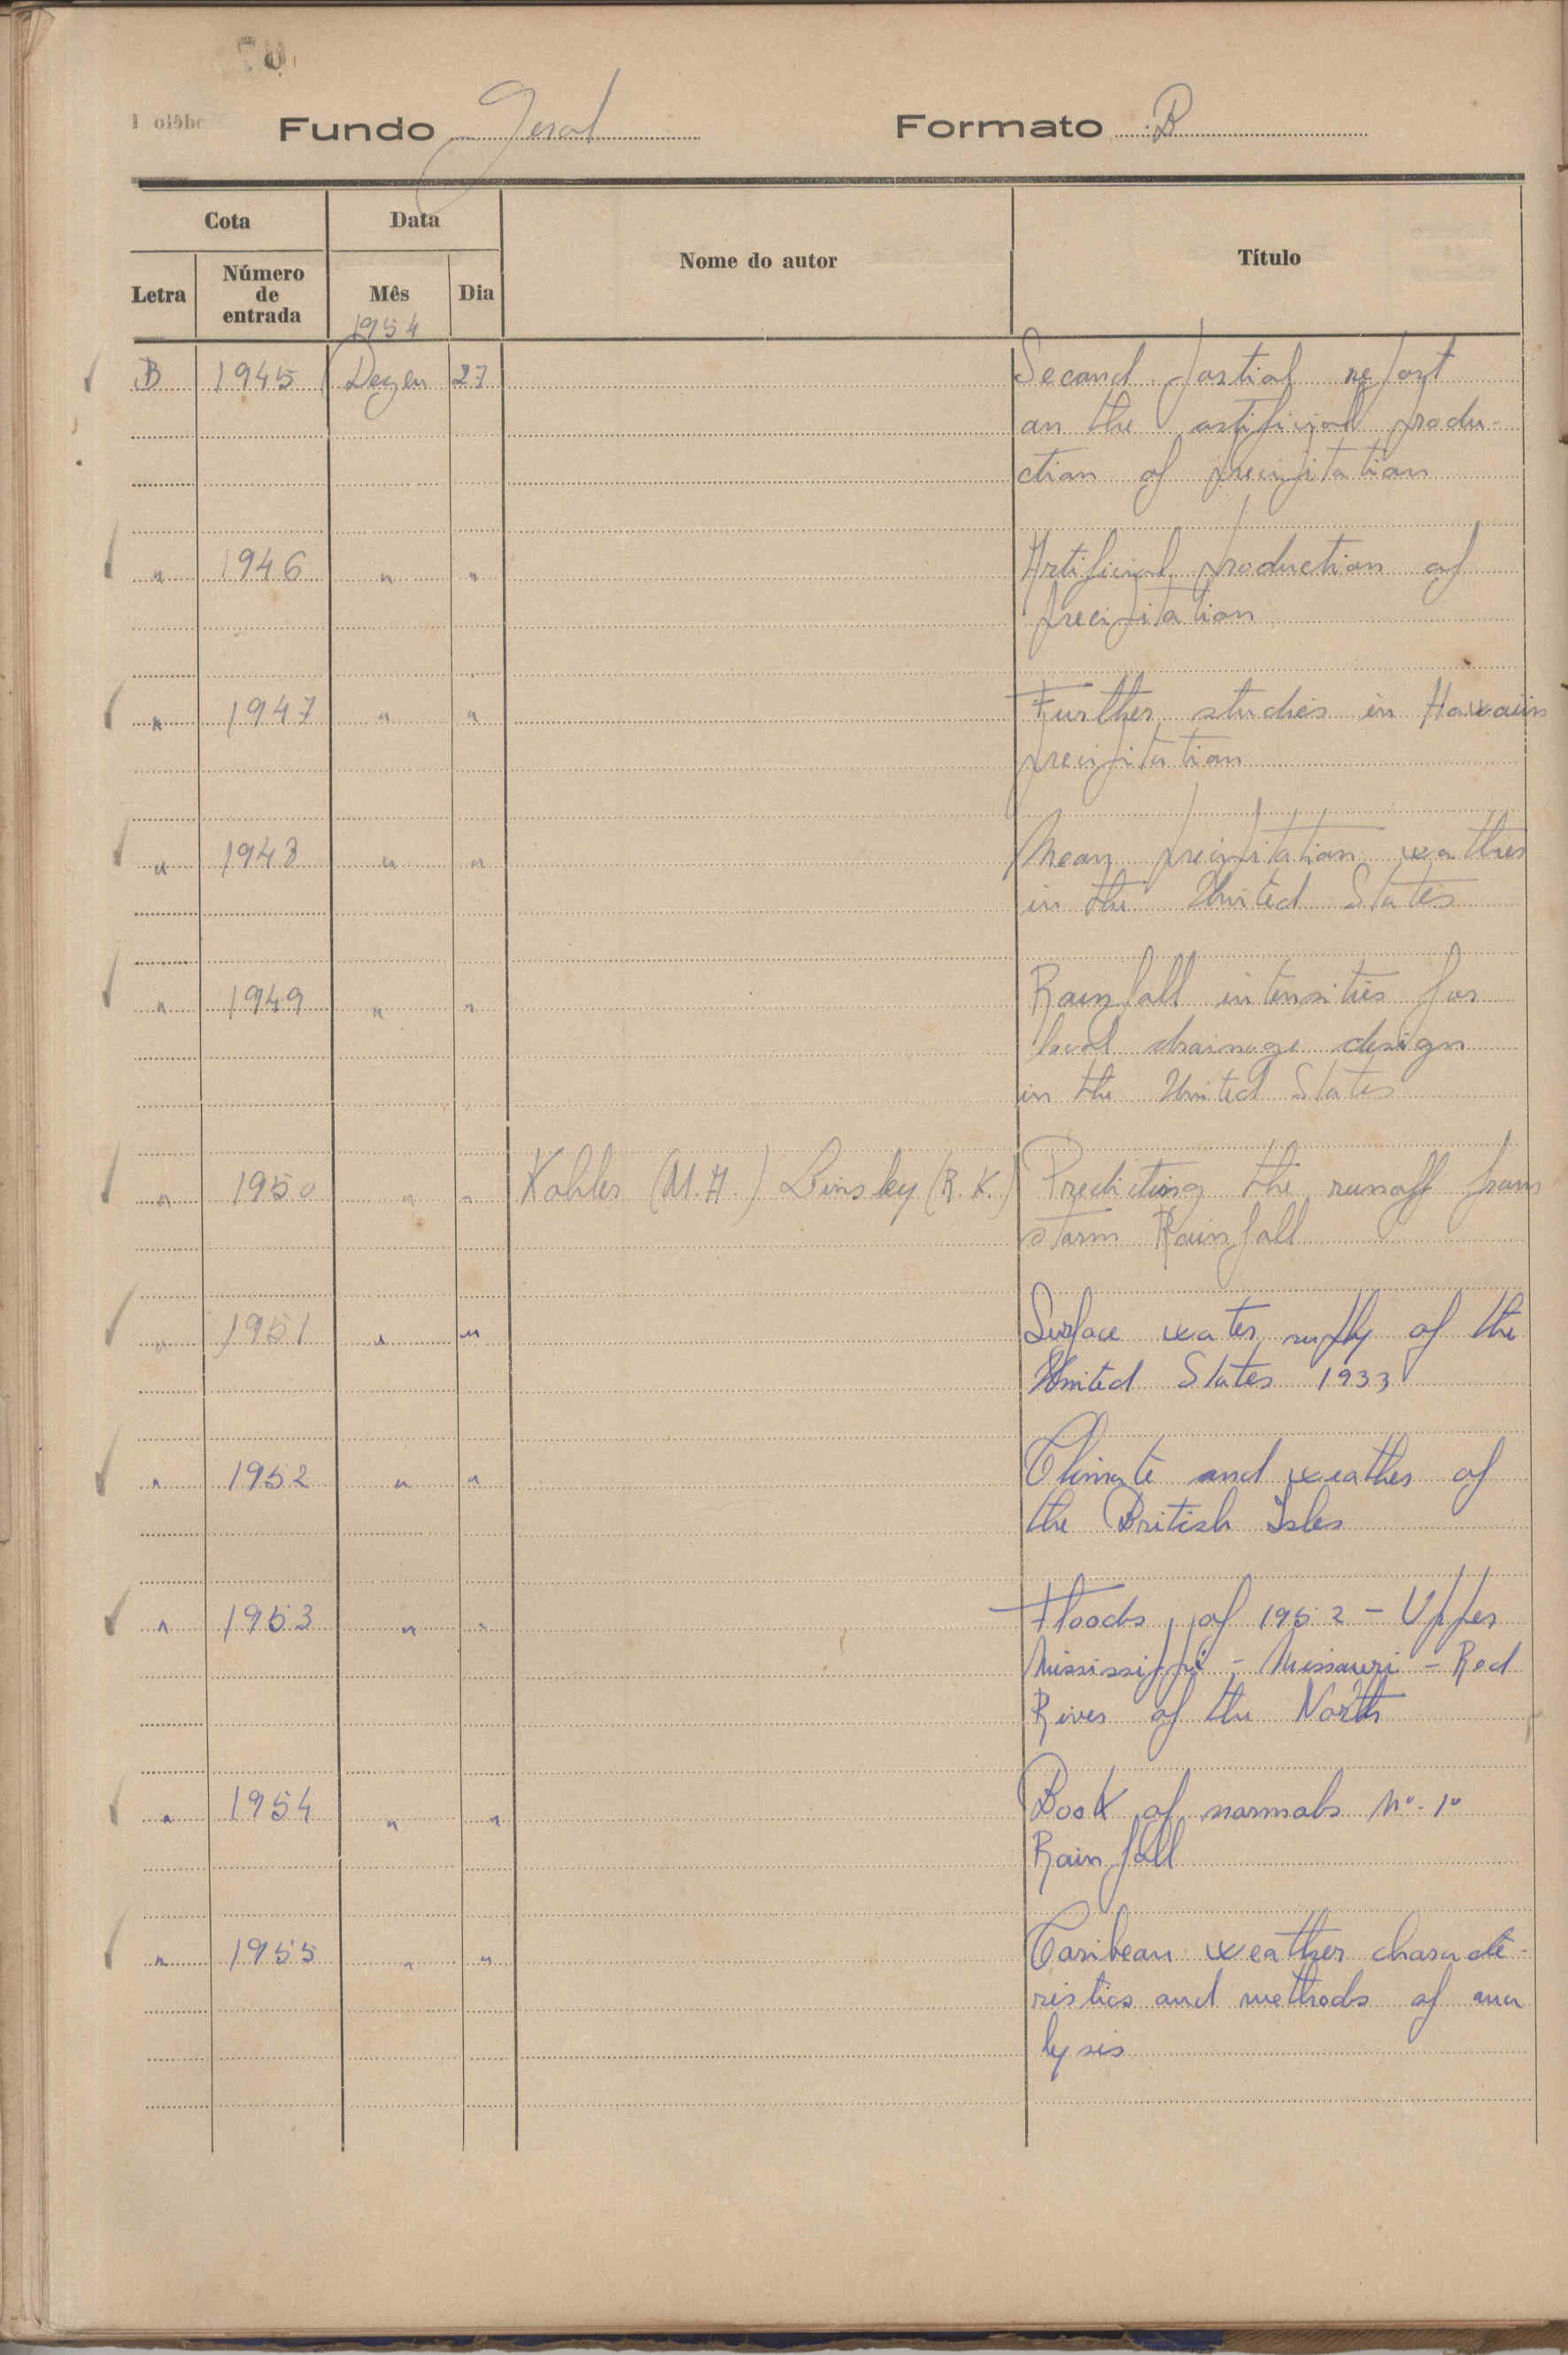 Fundo Geral Formato B
Cota Data Nome do autor Título
Letra Número de entrada Mês Dia
1954
B 1945 Dezem 27 Second partial report
on the artificial produ-
ction of precipitation
" 1946 " " Artificial production of
precipitation
" 1947 " " Further studies in Hawaiin
precipitation
" 1948 " " Mean precipitation wather
in the United States
" 1949 " " Rainfall intensities for
local drainage design
in the United States
" 1950 " " Kohler (M.A.) Linsley (R.K.) Predicting the runoff from
storm Rainfall
" 1951 " " Surface water supply of the
United States 1933
" 1952 " " Climate and weather of
the British Isles
" 1953 " " Floods of 1952 - Upper
Mississippi - Missouri - Red
River of the North
" 1954 " " Book of normals Nº. 1º
Rainfall
" 1955 " " Caribean weather characte-
ristics and methods of ana
lysis